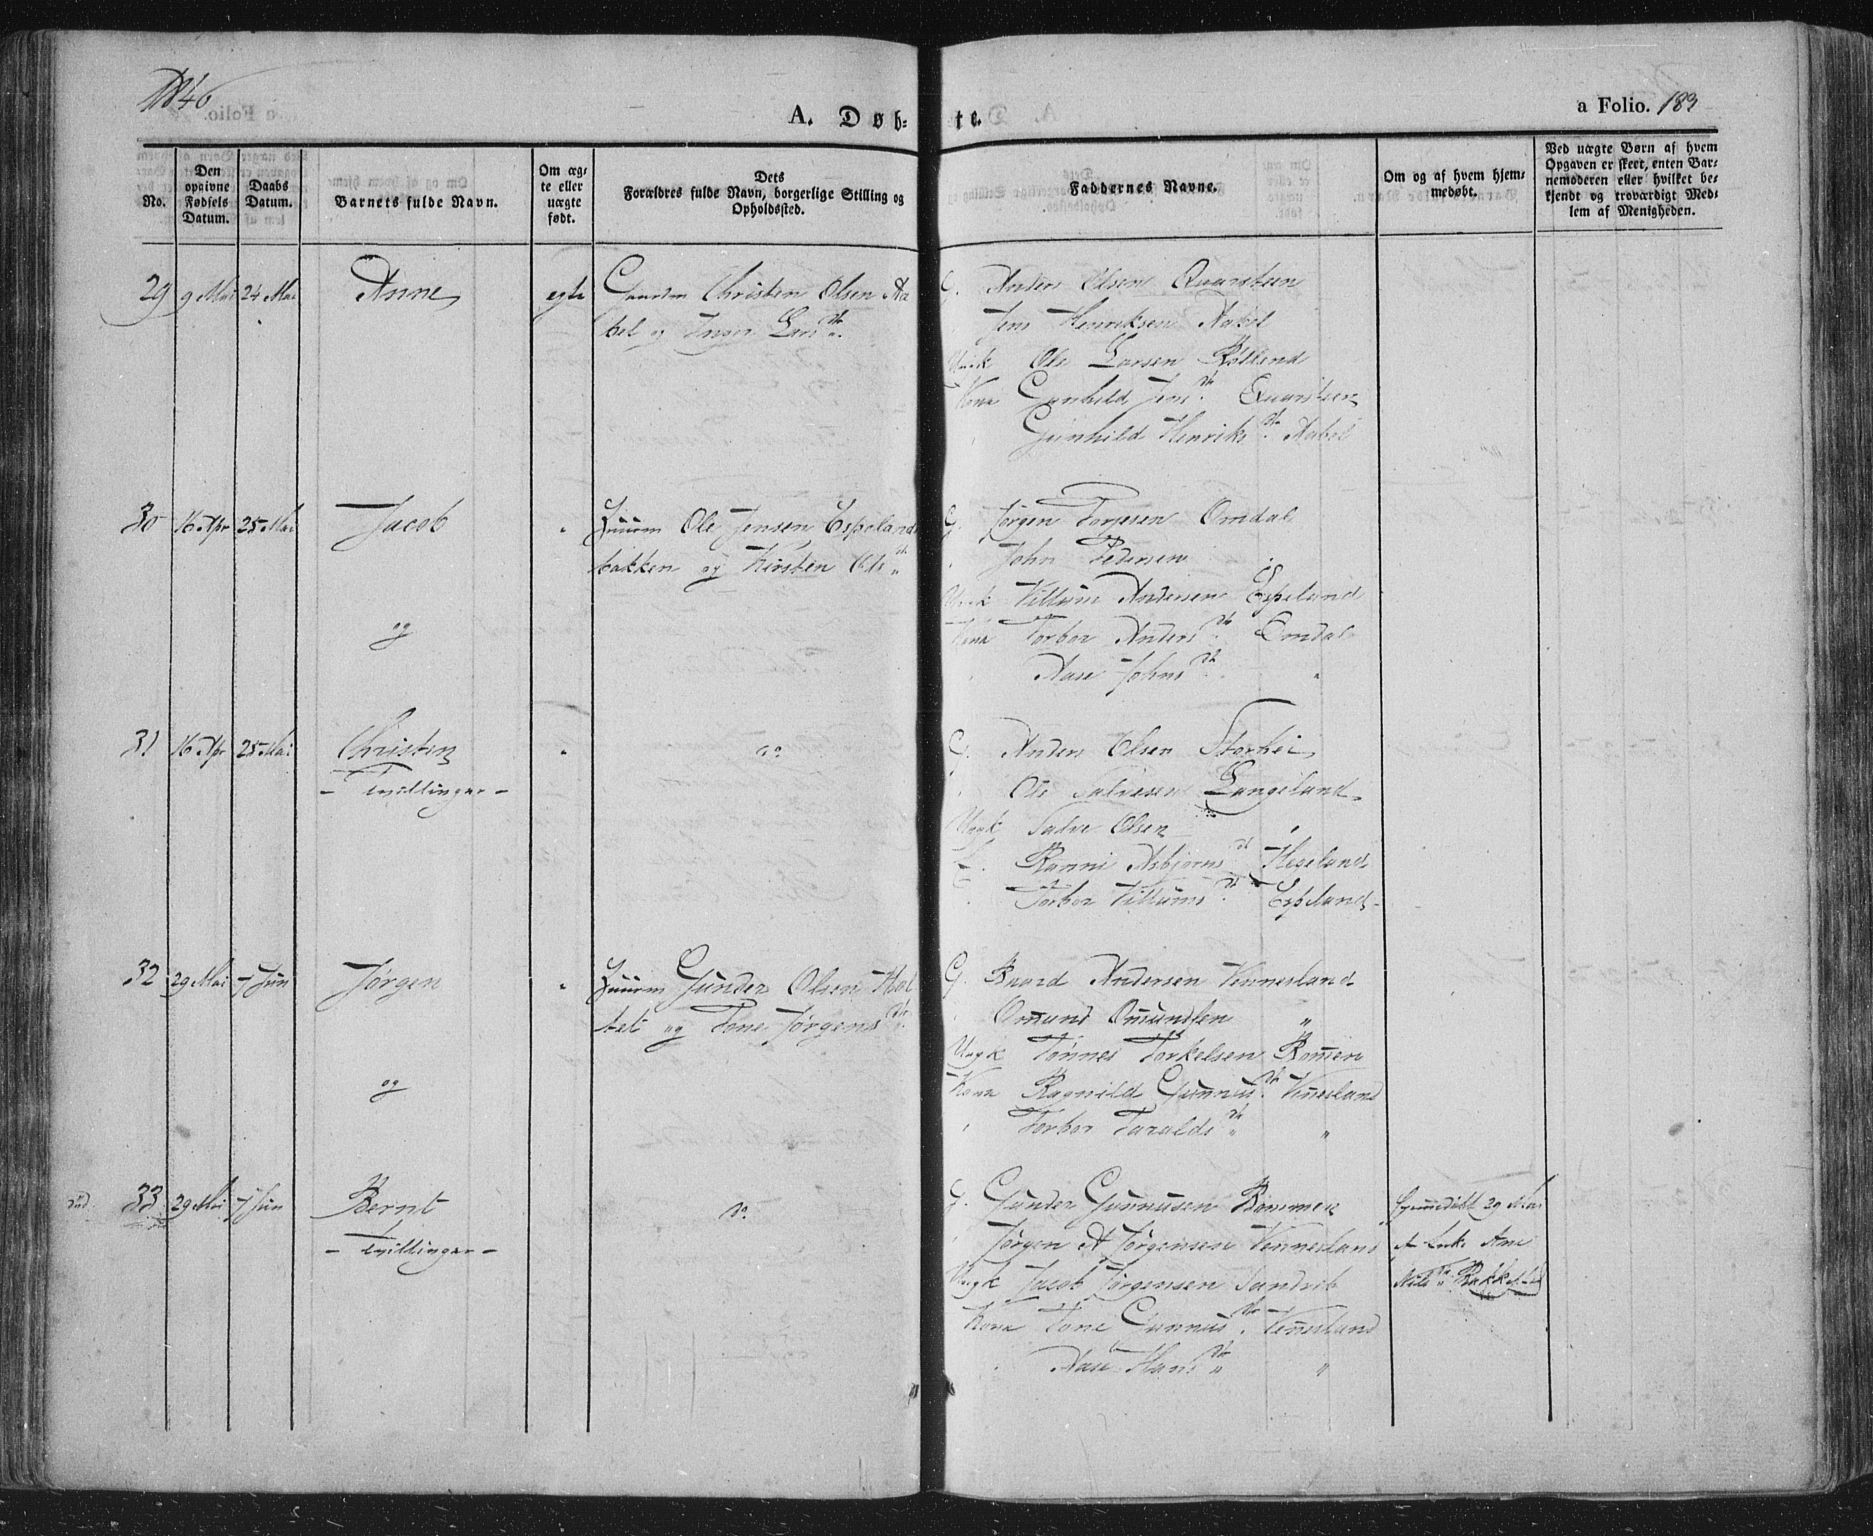 1846
A. Døb-
te.
a Folio. 189
No.
Den opgivne Fødsels Datum.
Daabs Datum.
Barnets fulde Navn.
Om ægte eller uægte født.
Dets Forældres fulde Navn, borgerlige Stilling og Opholdssted.
Faddernes Navne.
Om og af hvem hjemmedøbt.
Ved uægte Børn af hvem Opgaven er skeet, enten Barnemoderen eller hvilket bekjendt og troværdigt Medlem af Menigheden.
29 9 Mai 24 Mai Anne egte Gaardm Christen Olsen Aa
bel og Inger Larsdtr.
G. Anders Olsen Quarsteen
Jens Henriksen Aabel
Ungk Ole Larsen Røllend
Kone Gunhild Jensdtr. Quarsteen
Gunhild Henriksdtr. Aabel
30 16 Apr 25 Mai Jacob " Huusm Ole Jensen Espeland
bakken og Kirsten Olsdtr
og
G. Jørgen Torjesen Omdal
John Pedersen "
Ungk Villum Andersen Espeland
Kone Torbor Andersdtr. Omdal
Aase Johnsdtr. "
31 16 Apr 25 Mai Christen " do
- Tvillinger -
G. Anders Olsen Storhei
Ole Salvesen Langeland
Ungk Salve Olsen "
Ranni Asbjørnsdtr Hegeland
Torbor Villumsdtr. Espeland
32 29 Mai 7 Jun Jørgen " Huusm Gunder Olsen Hal
tet og Tone Jørgensdtr.
og
G. Baard Andersen Vennesland
Omund Omundsen "
Ungk Tønnes Torkelsen Rom̅en
Kone Ragnild Gunnusdtr. Vennesland
Torbor Taraldsdtr "
33 29 Mai 7 Jun Bernt do
- Tvillinger -
G. Gunder Gunnusen Rommen
Jørgen A Jørgensen Vennesland
Ungk Jacob Jørgensen Sandrib
Kone Tone Gunnusdtr. Vennesland
Aase Hansdtr "
Hjemmedøbt 29 Mai
af Enke Ane